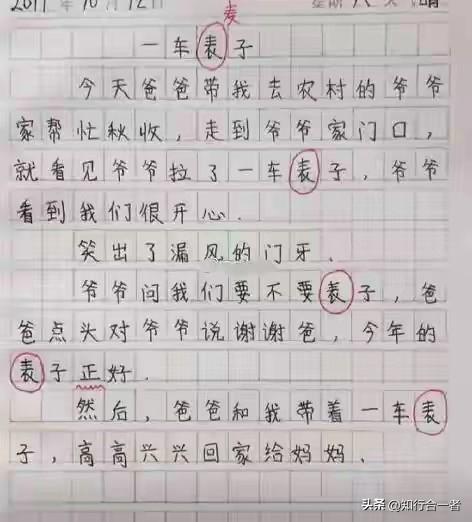 2017年10月12日 星期六 天气晴
麦
一车表子
今天爸爸带我去农村的爷爷
家帮忙秋收，走到爷爷家门口，
就看见爷爷拉了一车表子，爷爷
看到我们很开心．
笑出了漏风的门牙．
爷爷问我们要不要表子，爸
爸点头对爷爷说谢谢爸，今年的
表子正好．
然后，爸爸和我带着一车表
子，高高兴兴回家给妈妈．
头条@知行合一者